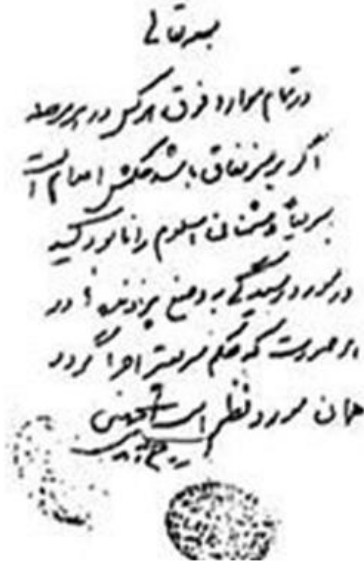 بسمه تعالی
در تمام موارد فوق هر کس در هر مرحله
اگر بر سر نفاق باشد حکمش اعدام است
سریعاً دشمنان اسلام را نابود کنید
در مورد رسیدگی به وضع پرونده‌ها در
هر صورت که حکم سریعتر اجرا گردد
همان مورد نظر است